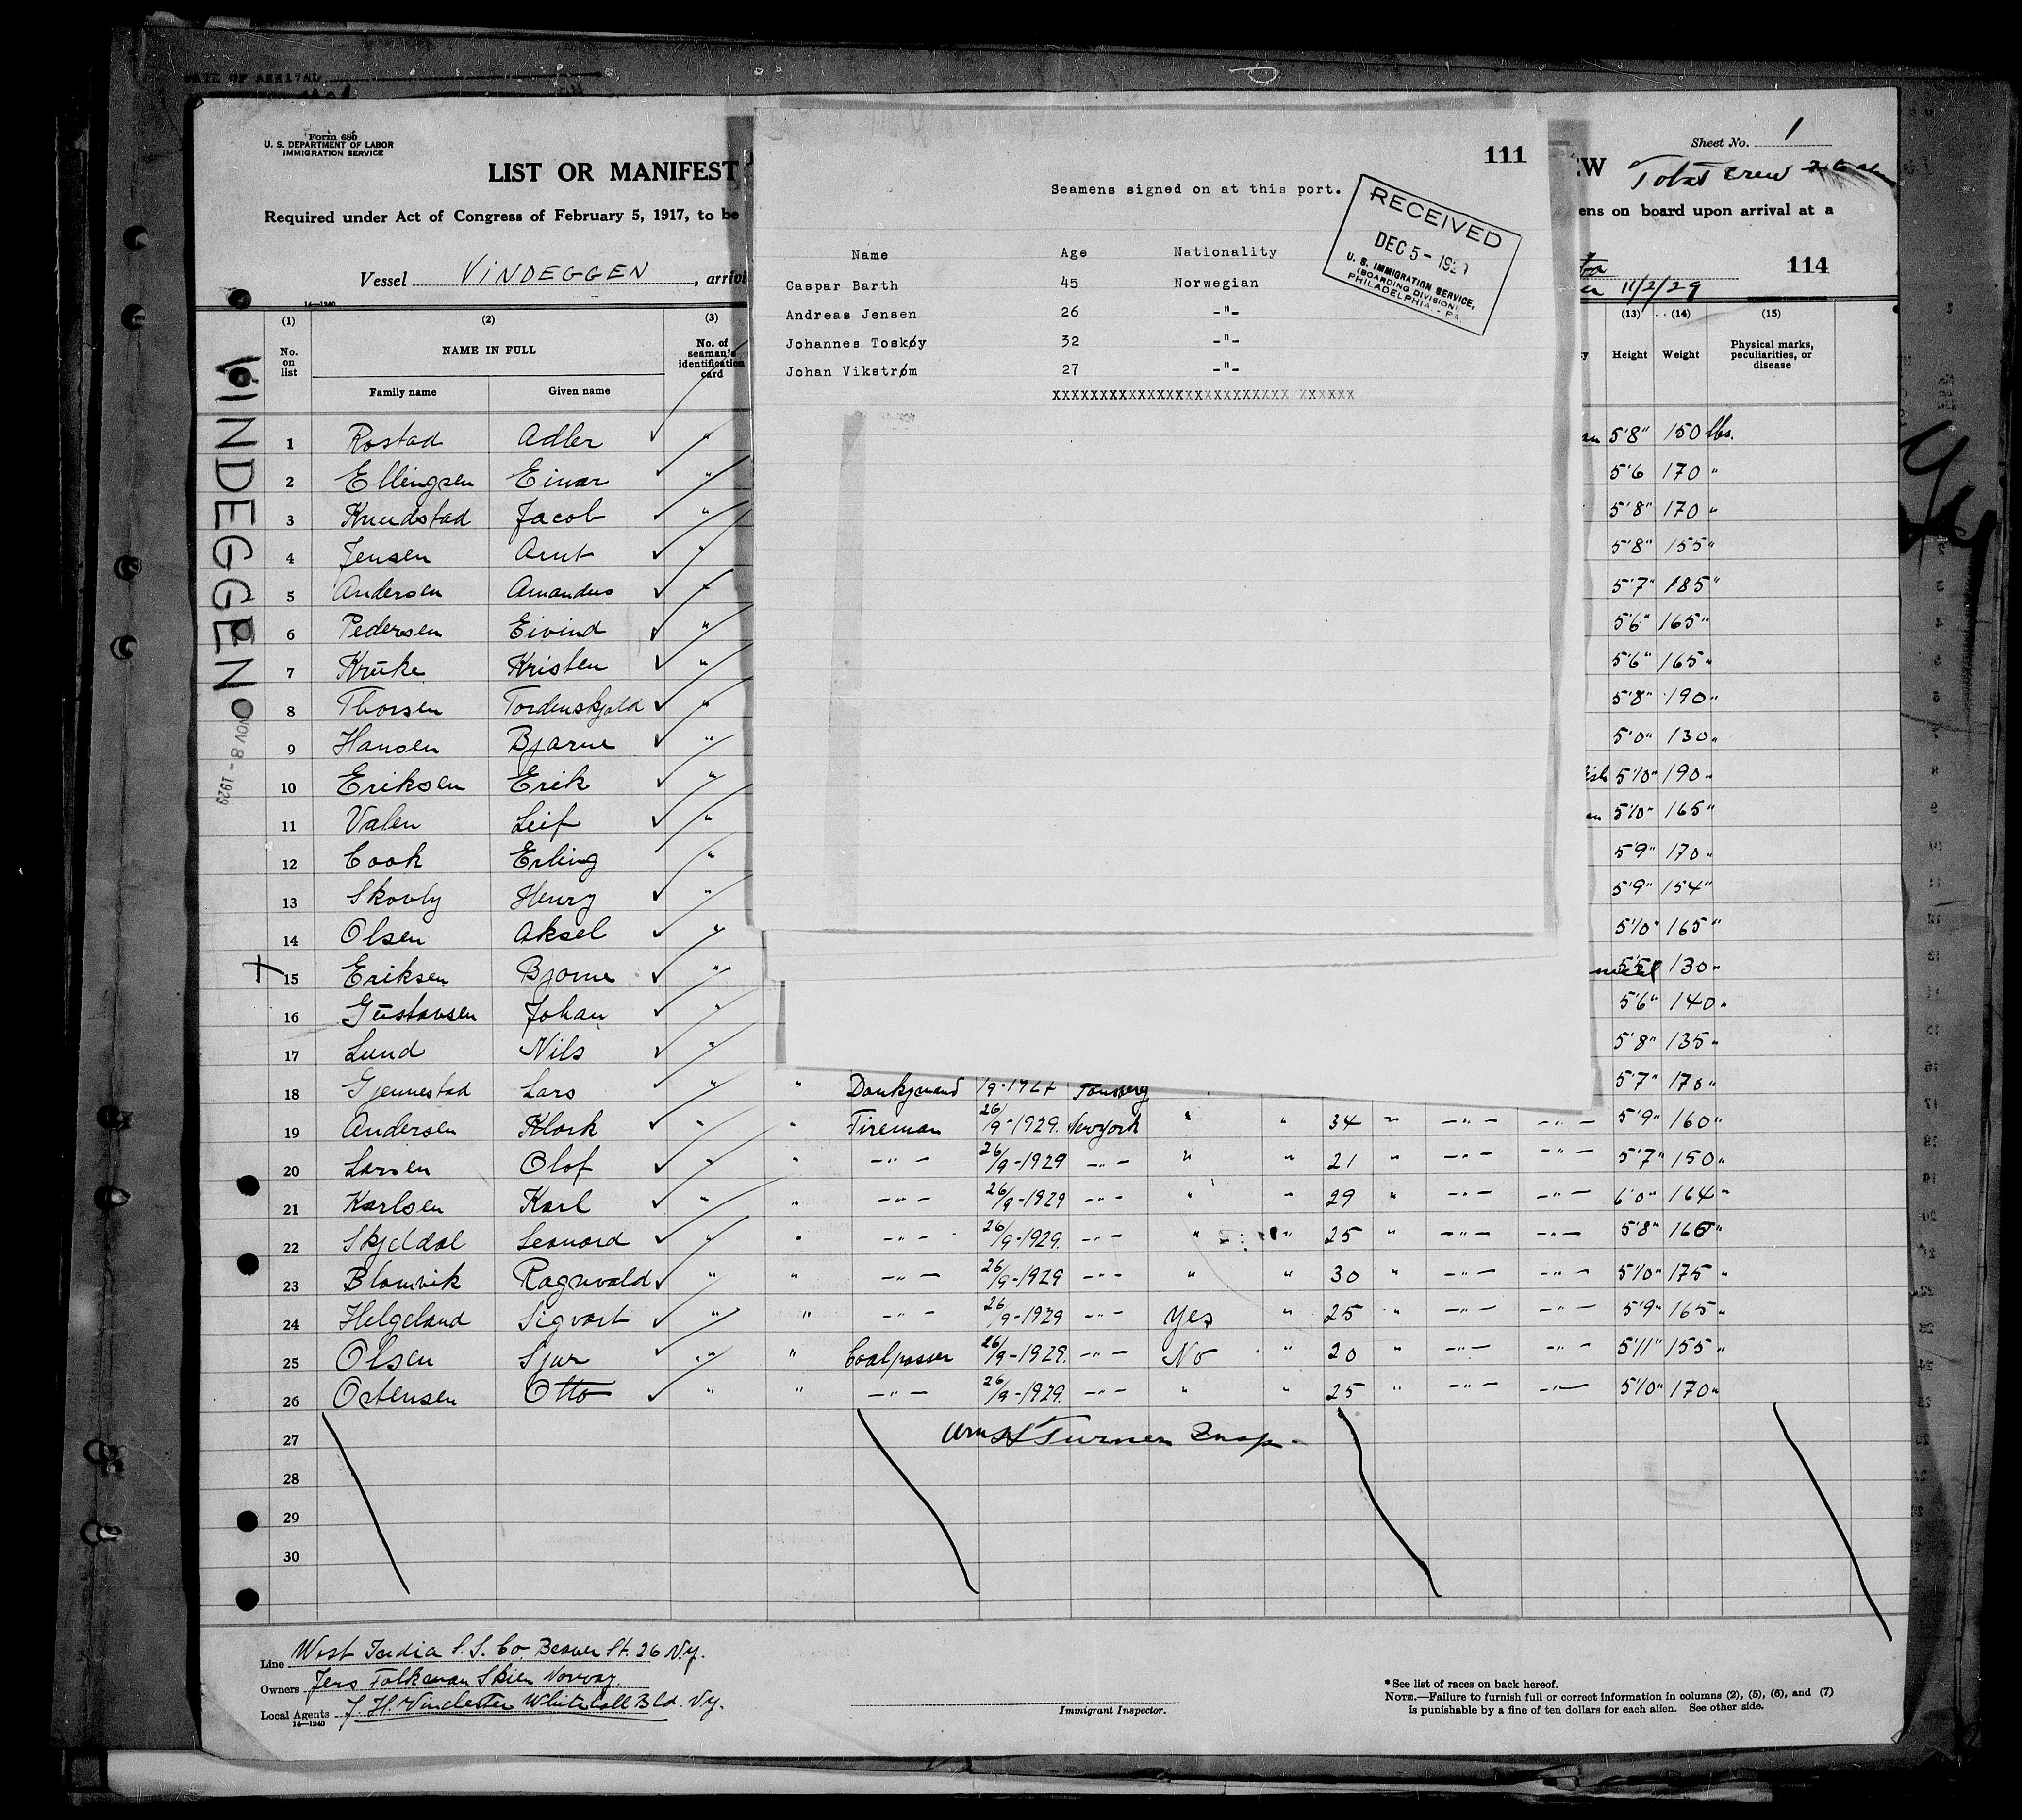 DATE OF ARRIVAL
Form 680
U. S. DEPARTMENT OF LABOR
IMMIGRATION SERVICE
Sheet No. 1
LIST OR MANIFEST
EW Total crew
Required under Act of Congress of February 5, 1917, to be
ens on board upon arrival at a
Vessel VINDEGGEN, arrived
114
11/2/29
14—1240
111
Seamens signed on at this port.
RECEIVED
DEC 5 - 192
U. S. IMMIGRATION SERVICE,
(BOARDING DIVISION)
PHILADELPHIA, - PA.
Name Age Nationality
Caspar Barth 45 Norwegian
Andreas Jensen 26 -"-
Johannes Toskøy 32 -"-
Johan Vikstrøm 27 -"-
XXXXXXXXXXXXXXXXXXXXXXXXXXXXXXXX
(1) (2) (3) (13) (14) (15)
No. on list NAME IN FULL No. of seaman's identification card Height Weight Physical marks, peculiarities, or disease
Family name Given name
VINDEGGEN
NOV 8 - 1929
1 Rostad Adler " 5'8" 150 lbs.
2 Ellingsen Einar " 5'6 170 "
3 Knudstad Jacob " 5'8" 170 "
4 Jensen Arnt " 5'8" 155 "
5 Andersen Amandus " 5'7" 185 "
6 Pedersen Eivind " 5'6" 165 "
7 Kruke Kristen " 5'6" 165 "
8 Thorsen Tordenskjold " 5'8" 190 "
9 Hansen Bjarne " 5'0" 130 "
10 Eriksen Erik " 5'10" 190 "
11 Valen Leif " 5'10" 165 "
12 Cook Erling " 5'9" 170 "
13 Skovly Henry " 5'9" 154 "
14 Olsen Aksel " 5'10" 165 "
15 Eriksen Bjorne " 130 "
16 Gustavsen Johan " 5'6" 140 "
17 Lund Nils " 5'8" 135 "
18 Gjennestad Lars " " Donkjmand Tonsberg 5'7" 170 "
19 Andersen Klark " " Fireman 26/9-1929. Newyork " " 34 " -"- -"- 5'9" 160 "
20 Larsen Olof " " -"- 26/9-1929 -"- " " 21 " -"- -"- 5'7" 150 "
21 Karlsen Karl " " -"- 26/9-1929 -"- " " 29 " -"- -"- 6'0" 164 "
22 Skjeldal Leonard " " -"- 26/9-1929. -"- " " 25 " -"- -"- 5'8" 160 "
23 Blomvik Ragnvald " " -"- 26/9-1929 -"- " " 30 " -"- -"- 5'10" 175 "
24 Helgeland Sigvart " " -"- 26/9-1929 -"- Yes " 25 " -"- -"- 5'9" 165 "
25 Olsen Sjur " " Coalpasser 26/9-1929. -"- No " 20 " -"- -"- 5'11" 155 "
26 Ostensen Otto " " -"- 26/9-1929. -"- " " 25 " -"- -"- 5'10" 170 "
27 Wm H Turner Insp.
28
29
30
Line West India S.S. Co. Beaver St. 26 Ny.
Owners Jens Folkman Skien Norway.
Local Agents J. H. Winchester Whitehall Bld. Ny.
14—1240
Immigrant Inspector.
* See list of races on back hereof.
NOTE.—Failure to furnish full or correct information in columns (2), (5), (6), and (7)
is punishable by a fine of ten dollars for each alien. See other side.